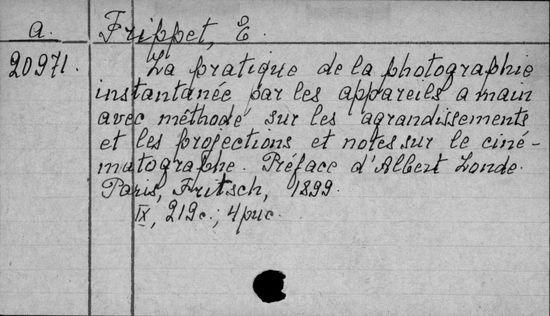 a. Frippet, E.
20971. La pratique de la photographie
instantanée par les appareils a main
avec méthode sur les agrandissements
et les projections et notes sur le ciné-
matographe. Préface d'Albert Londe.
Paris, Fritsch, 1899.
IX, 212 с.; 4 рис.